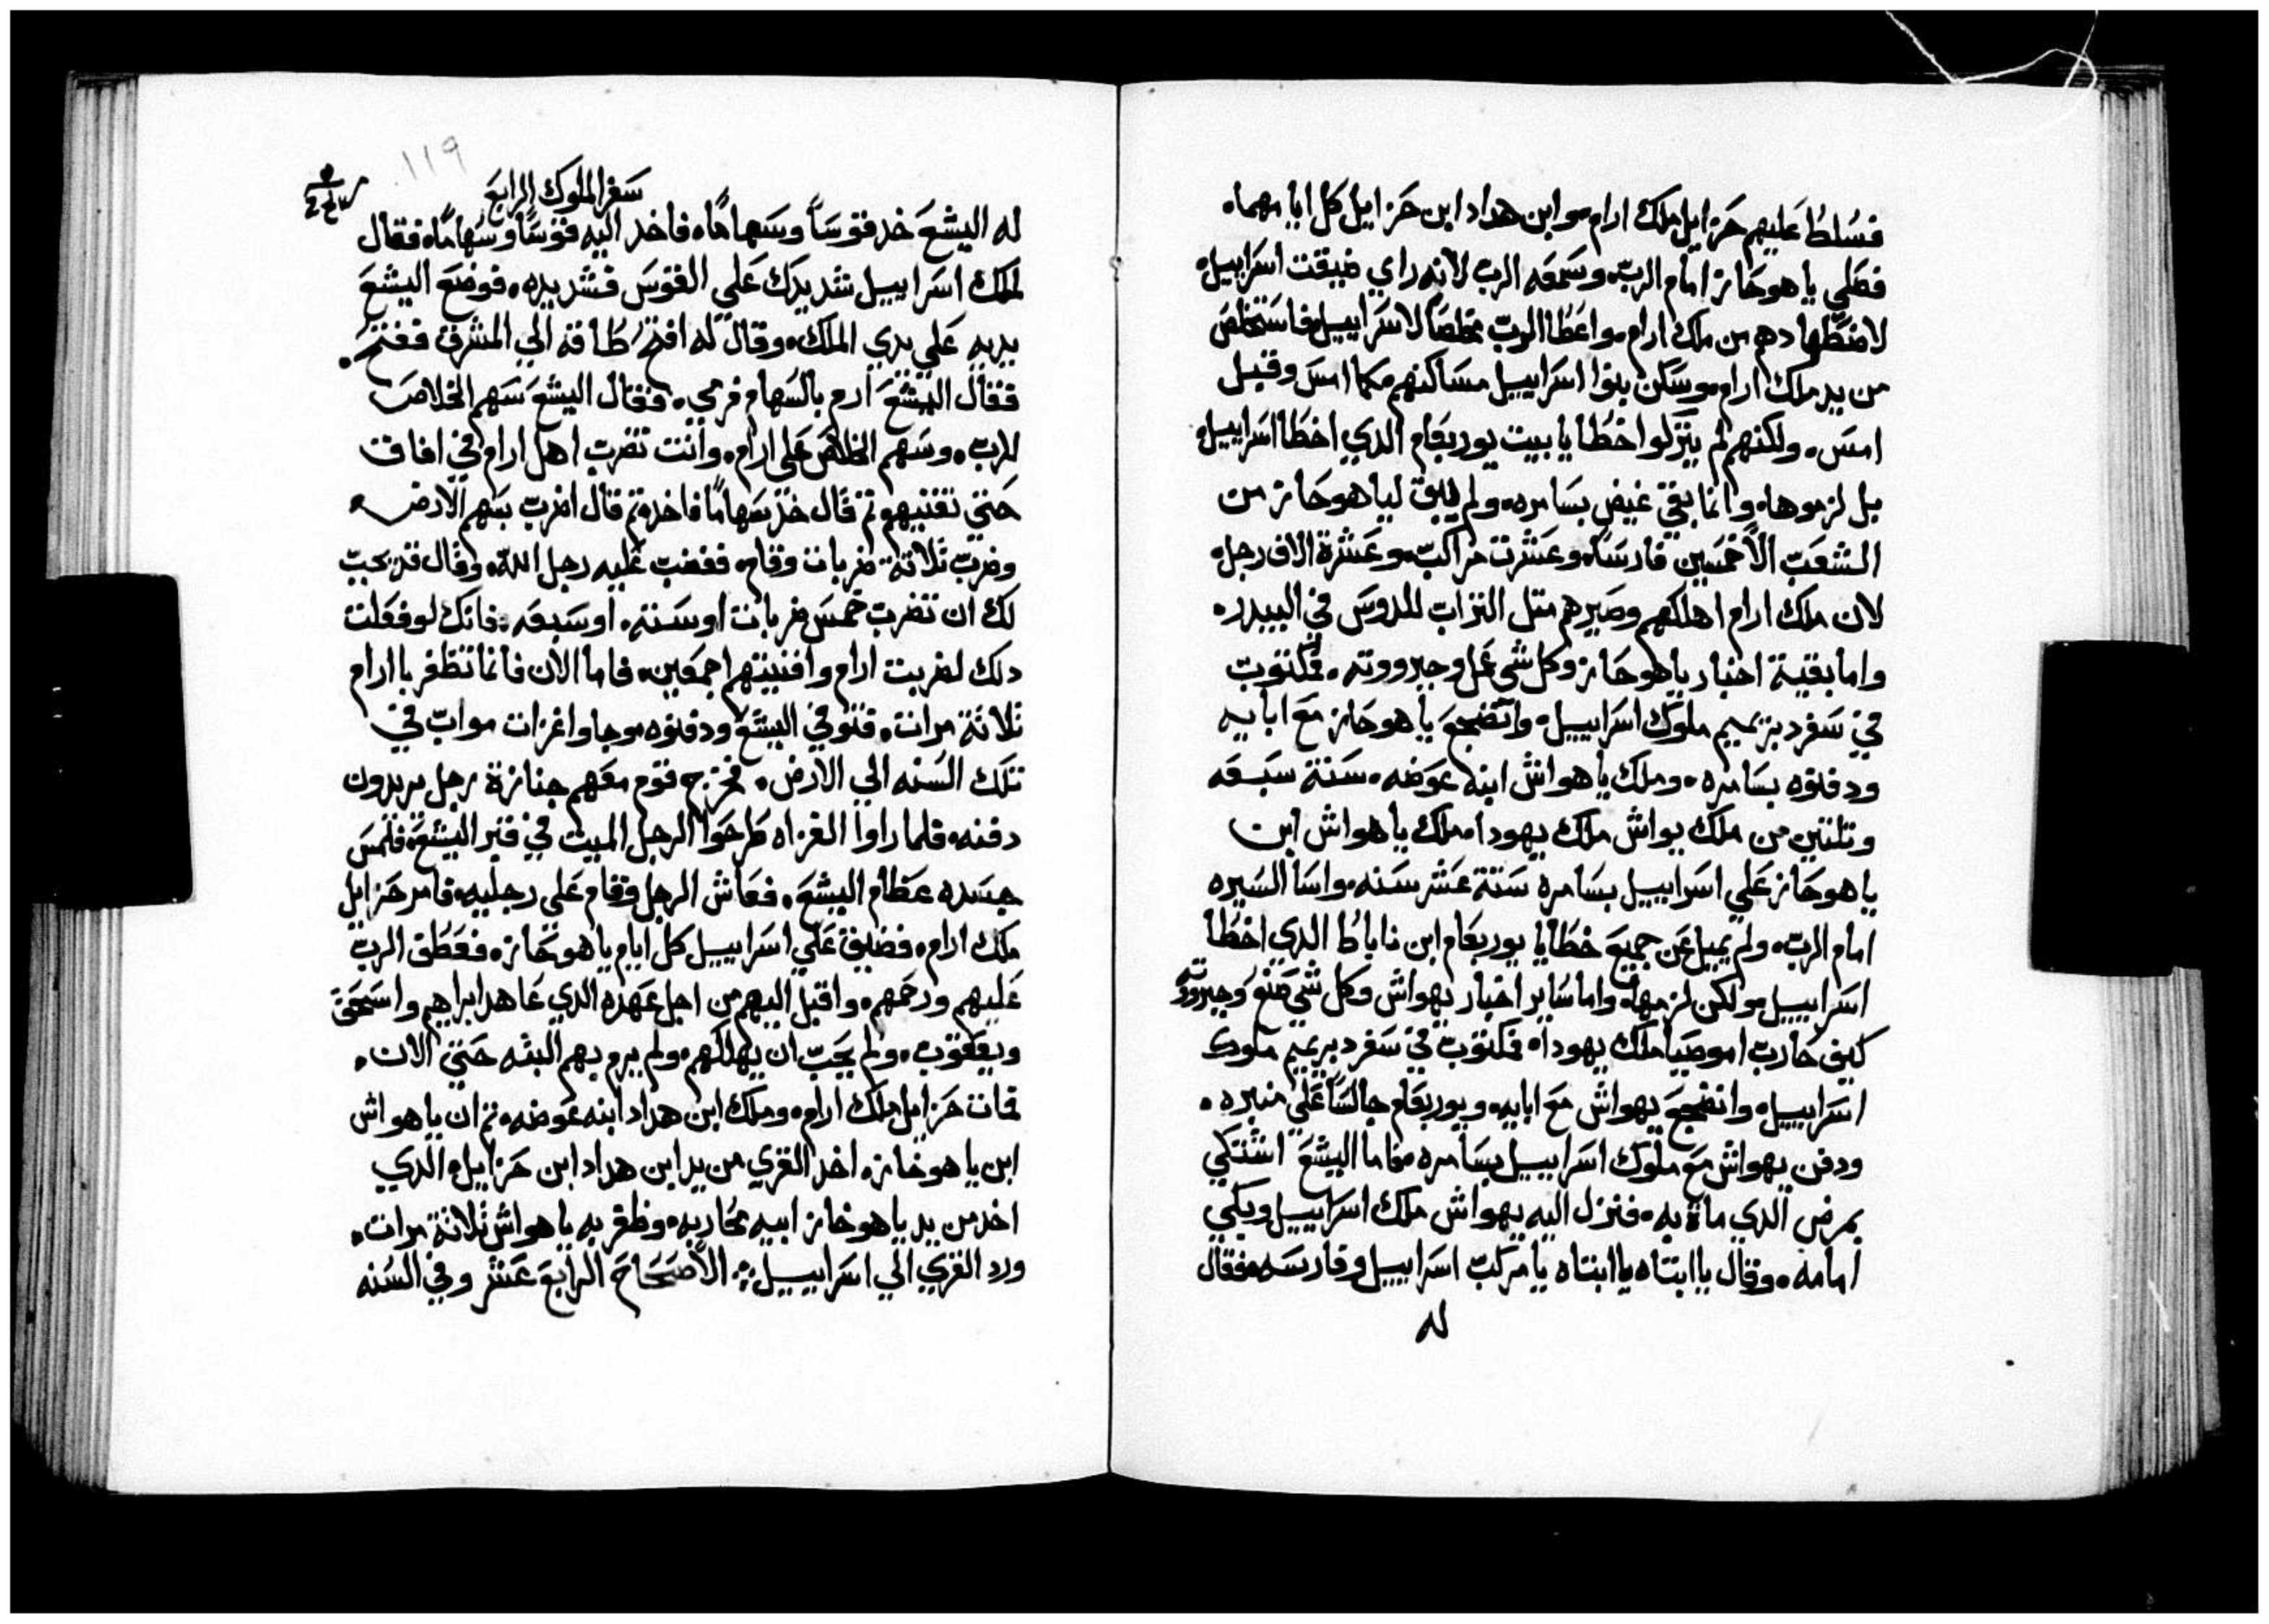 فسُلط عليهم حزاييل ملك ارام. وابن هداد ابن حزاييل كل ايامهما.
فصلي ياهوحاز امام الرب. وسمعه الرب لانه راي ضيقت اسراييل.
لاضطهادهم من ملك ارام. واعطا الرب مخلصاً لاسراييل. فاستخلص
من يد ملك ارام. وسكن بنوا اسراييل مساكنهم كما امس وقبل
امس. ولكنهم لم ينزلوا خطايا بيت يوربعام الدي اخطا اسراييل.
بل لزموها. وانما بقي غيض بسامره. ولم يبق لياهوحاز من
الشعب الا خمسين فارساً. وعشرت مراكب. وعشرة الاف رجل.
لان ملك ارام اهلكهم وصيرهم متل التراب للدوس في البيدر.
واما بقية اخبار ياهوحاز وكل شي عمل وجبرووته. فمكتوب
في سفر دبريميم ملوك اسراييل. واتضجع ياهوحاز مع ابايه
ودفنوه بسامره. وملك ياهواش ابنه عوضه. سنة سبعه
وتلتين من ملك يواش ملك يهودا. ملك ياهواش ابن
ياهوحاز علي اسراييل بسامره ستة عشر سنه. واسا السيره
امام الرب. ولم يميل عن جميع خطايا يوربعام ابن ناباط الدي اخطا
اسراييل. ولكن لزمها. واما ساير اخبار يهواش وكل شي صنع وجبروته
كيف حارب اموصيا ملك يهودا. فمكتوب في سفر دبريميم ملوك
اسراييل. واتضجع يهواش مع ابايه. ويوربعام جالساً علي منبره.
ودفن يهواش مع ملوك اسراييل بسامره. فاما اليشع اشتكي
بمرض الدي مات به. فنزل اليه يهواش ملك اسراييل وبكي
امامه. وقال يا ابتاه يا ابتاه يا مركب اسراييل وفارسه. فقال
له
١١٩
سفر الملوك الرابع
له اليشع خد قوساً وسهاماً. فاخد اليه قوساً وسهاماً. فقال
لملك اسراييل شد يدك علي القوس فشد يده. فوضع اليشع
يديه علي يدي الملك. وقال له افتح طاقة الي المشرق ففتح.
فقال اليشع ارم بالسهام فرمي. فقال اليشع سهم الخلاص
للرب. وسهم الخلاص علي ارام. وانت تضرب اهل ارام في افاق
حتي تفنيهم. تم قال خد سهاماً فاخد. تم قال اضرب بسهم الارض.
وضرب تلاتة ضربات وقام. فغضب عليه رجل الله. وقال قد يجب
لك ان تضرب خمس ضربات او سته. او سبعه. فانك لو فعلت
دلك لضربت ارام وافنيتهم اجمعين. فاما الان فانما تظفر باارام
تلاتة مرات. فتوفي اليشع ودفنوه. وجاوا غزات مواب في
تلك السنه الي الارض. فخرج قوم معهم جنازة رجل يريدون
دفنه. فلما راوا الغزاه طرحوا الرجل الميت في قبر اليشع. فلمس
جسده عظام اليشع. فعاش الرجل وقام علي رجليه. فامر حزاييل
ملك ارام. فضيق علي اسراييل كل ايام ياهوحاز. فعطف الرب
عليهم ورحمهم. واقبل اليهم من اجل عهده الدي عاهد ابراهيم واسحق
ويعقوب. ولم يحب ان يهلكهم. ولم يرم بهم البته حتي الان.
فمات حزاييل ملك ارام. وملك ابن هداد ابنه عوضه. تم ان ياهواش
ابن ياهوخاز. اخد القري من يد ابن هداد ابن حزاييل. الدي
اخد من يد ياهوخاز ابيه بمحاربه. وظفر به ياهواش تلاتة مرات.
ورد القري الي اسراييل. الاصحاح الرابع عشر وفي السنه